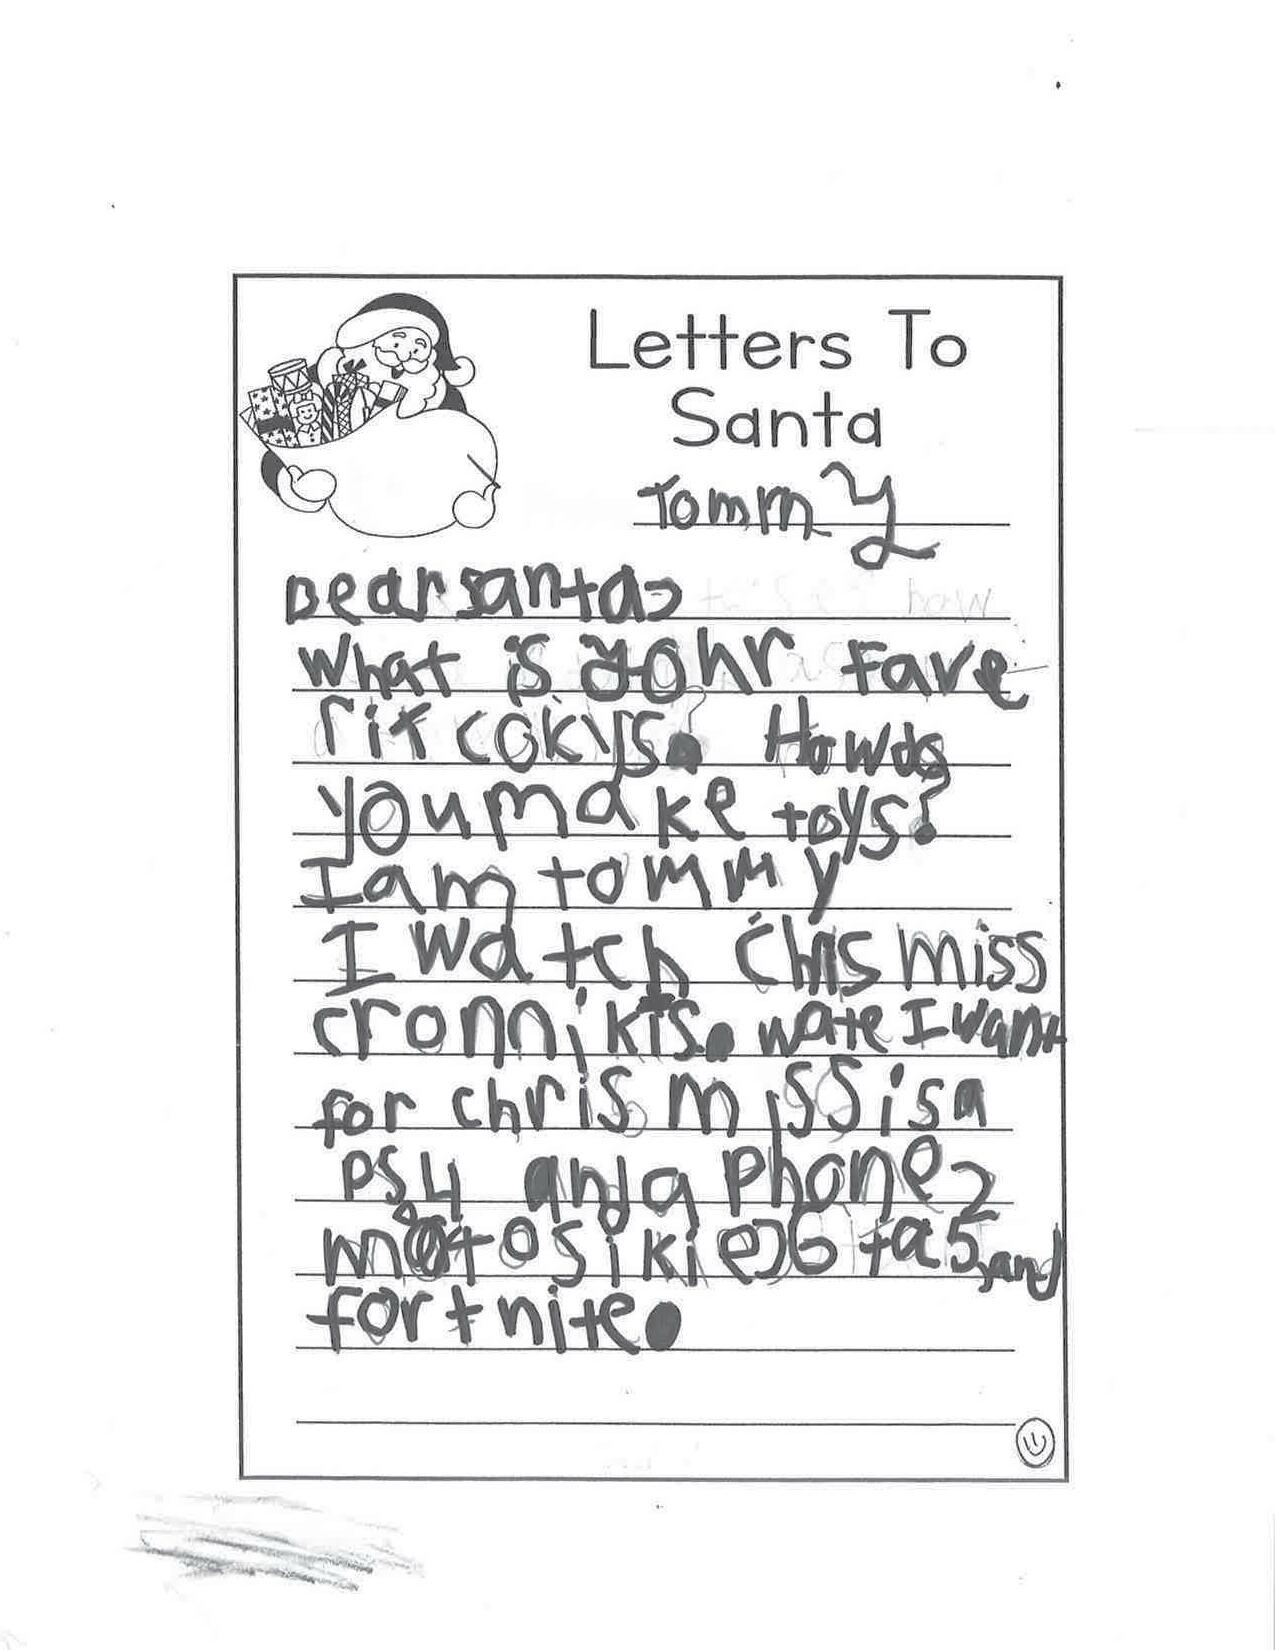 Letters To
Santa
Tommy
Dear santa,
What is yohr Fave
rit cokys. Howdo
you make toys?
I am tommy
I watch chrismiss
cronnikis. wate I want
for chrismiss is a
PS4 and a phone,
motosikie, Gta5, and
fortnite.